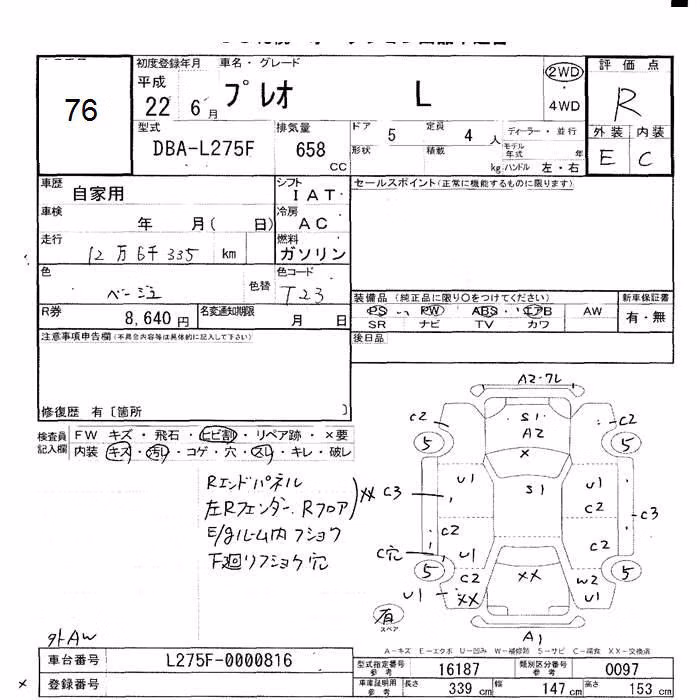 76
初度登録年月 車名・グレード
平成 22 6月 プレオ L
2WD
4WD
評価点
R
外装 内装
E C
型式 排気量
DBA-L275F 658 CC
ドア 5 定員 4 人
形状 積載 kg
ディーラー・並行
モデル年式 年
ハンドル 左・右
車歴 自家用
シフト IAT
セールスポイント(正常に機能するものに限ります)
車検 年 月( 日)
冷房 AC
走行 12万6千335 km
燃料 ガソリン
色 ベージュ 色替
色コード T23
装備品 (純正品に限り〇をつけてください)
PS PW ABS エアB AW
SR ナビ TV カワ
新車保証書
有・無
R券 8,640円
名変通知期限 月 日
後日品
注意事項申告欄(不具合内容等は具体的に記入して下さい)
修復歴 有〔箇所 〕
検査員記入欄
FW キズ・飛石・ヒビ割・リペア跡・×要
内装 キズ・汚レ・コゲ・穴・スレ・キレ・破レ
Rエンドパネル
左Rフェンダー、Rフロア
XX
E/gルーム内フショク
下廻リフショク穴
A2-ワレ
C2 S1 C2
A2
5 × 5
U1 S1 U1
C2
C3 C3
C2 C2
C穴 U1
5 C2 XX W2 5
U1 XX U1
有
スペア
A1
A-キズ E-エクボ U-凹み W-補修跡 S-サビ C-腐食 XX-交換済
外AW
車台番号 L275F-0000816
登録番号
型式指定番号 参考 16187 類別区分番号 参考 0097
車庫証明用 参考 長さ 339 cm 幅 147 cm 高さ 153 cm